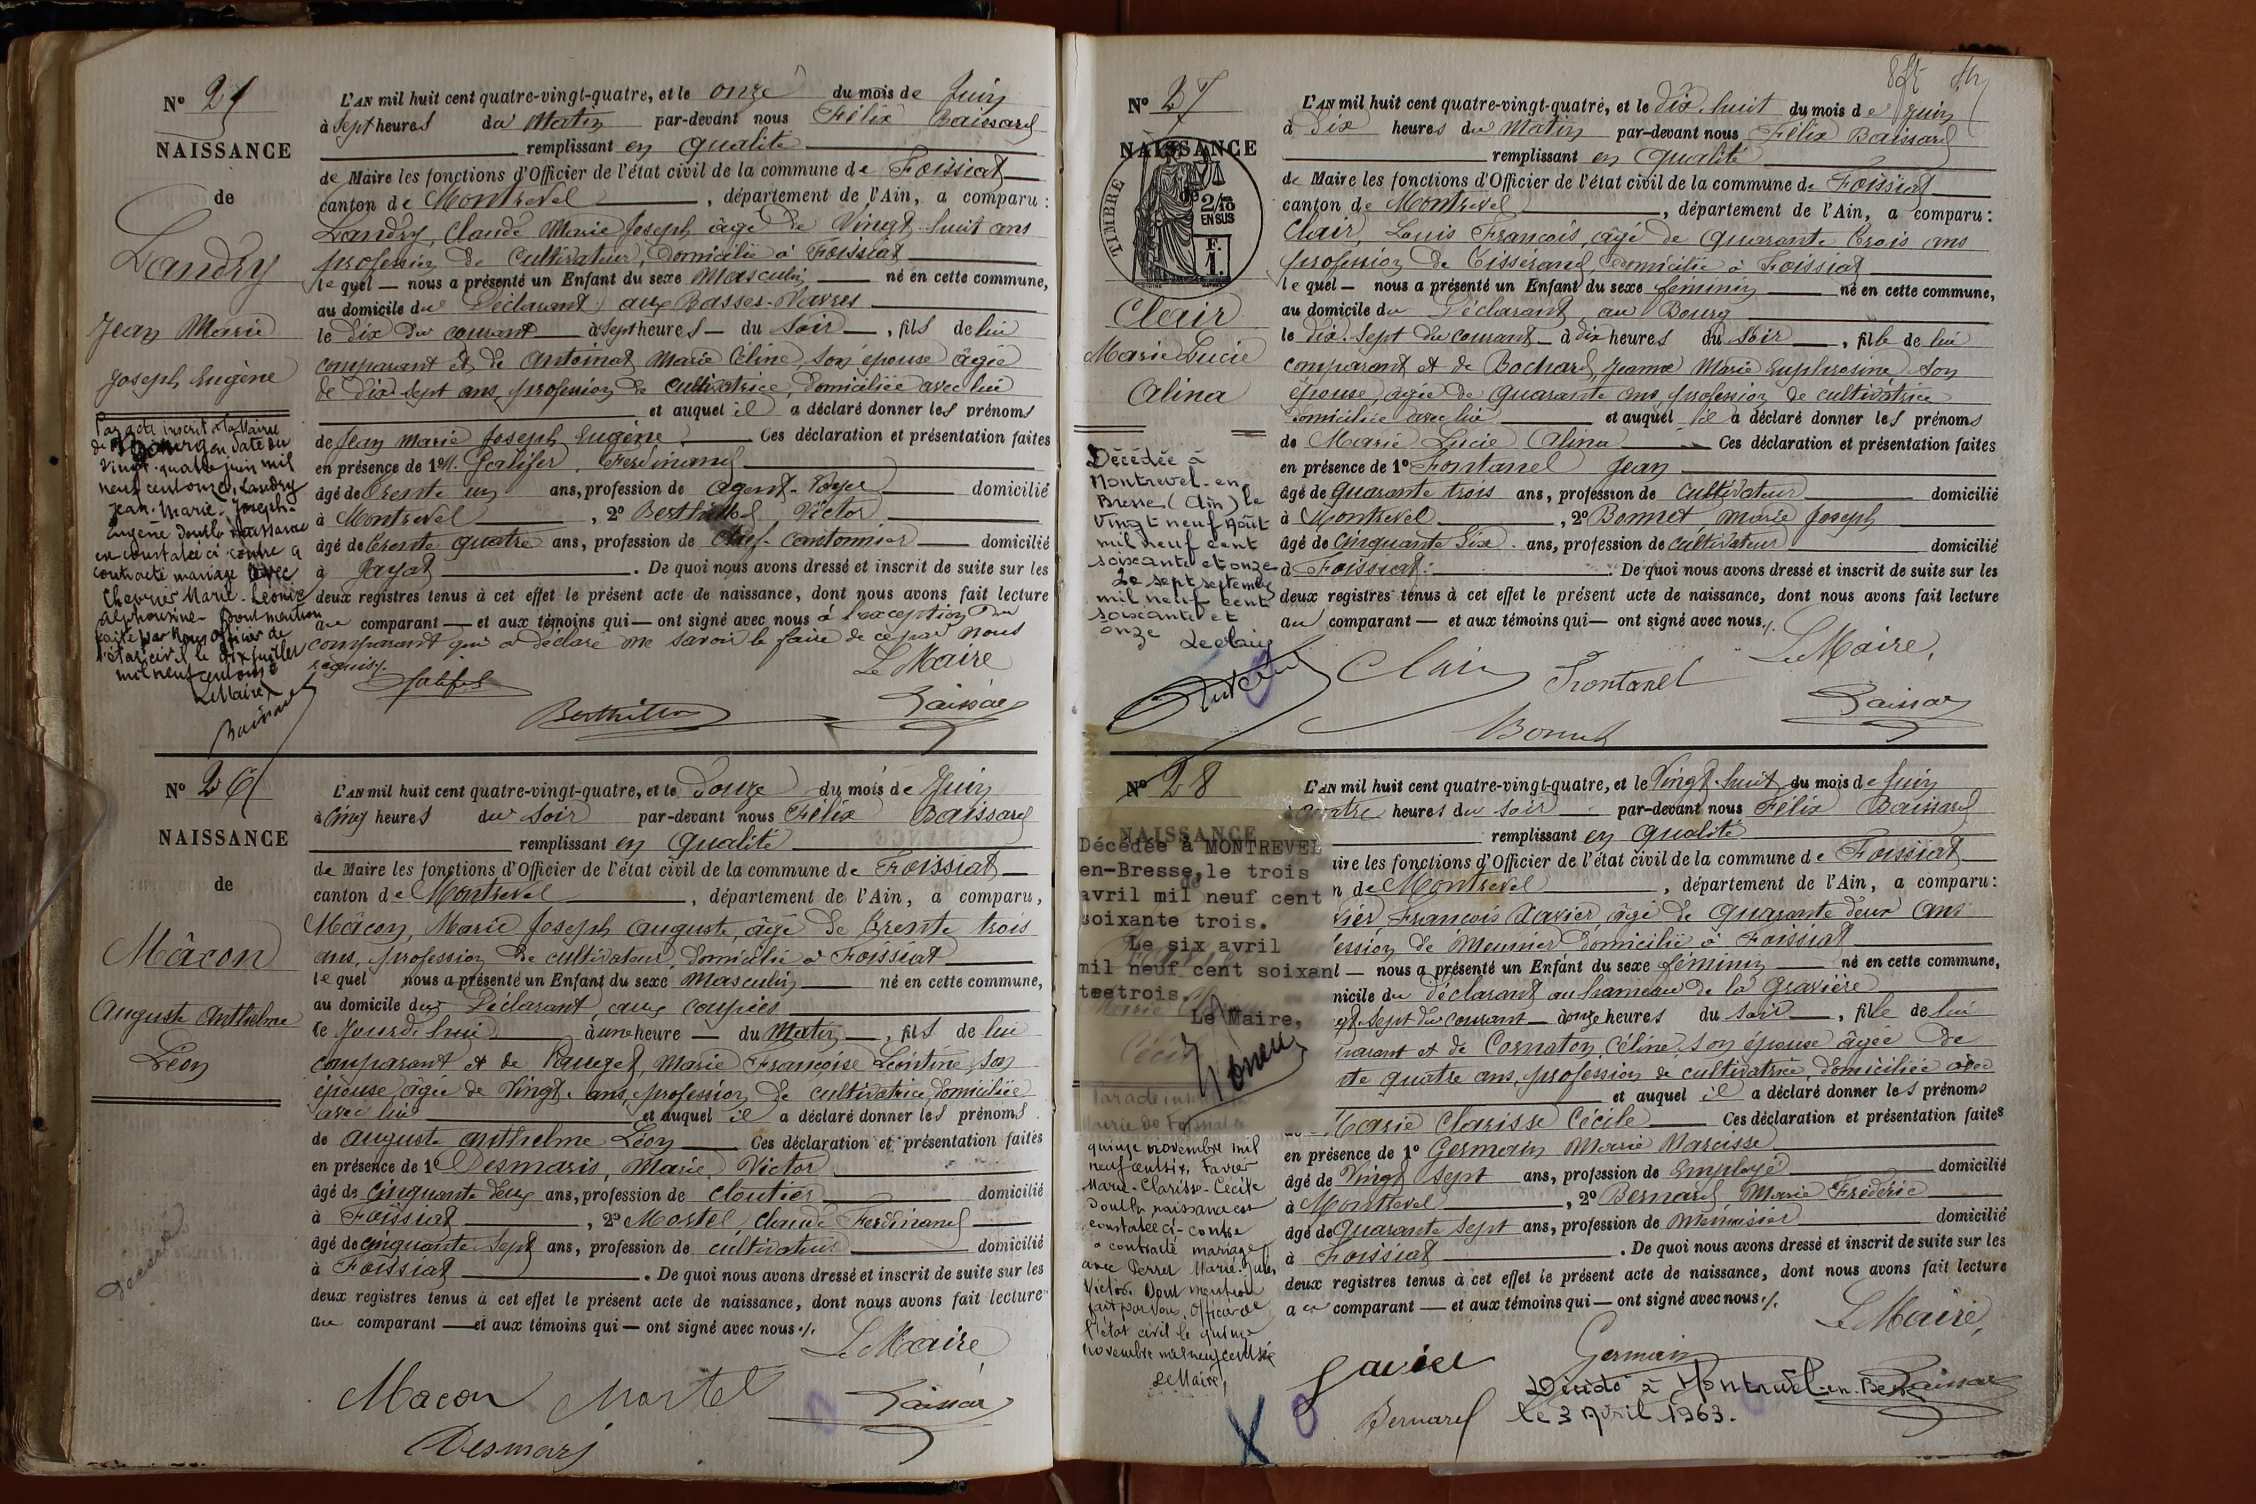 Nº 25
NAISSANCE
de
Landry
Jean Marie
Joseph Eugène
Par acte inscrit à la Mairie
de en date du
vingt-quatre juin mil
neuf cent onze, Landry
Jean-Marie-Joseph-
Eugène dont la naissance
est constatée ci-contre a
contracté mariage avec
Chevrier Marie-Léonie
Alphonsine- Dont mention
faite par Nous officier de
l'état civil le dix juillet
mil neuf cent onze
Le Maire
Baissard
L'AN mil huit cent quatre-vingt-quatre, et le onze du mois de Juin
à Sept heures du Matin par-devant nous Félix Baissard
remplissant en qualité
de Maire les fonctions d'Officier de l'état civil de la commune de Foissiat
canton de Montrevel, département de l'Ain, a comparu :
Landry, Claude Marie Joseph âgé de Vingt-huit ans
profession de Cultivateur, domicilié à Foissiat
lequel — nous a présenté un Enfant du sexe Masculin né en cette commune,
au domicile du Déclarant, aux Basses-Vavres
le dix du courant à sept heures — du soir, fils de lui
comparant et de Antoinat Marie Céline, son épouse âgée
de dix sept ans, profession de cultivatrice, domiciliée avec lui
et auquel il a déclaré donner les prénoms
de Jean Marie Joseph Eugène. Ces déclaration et présentation faites
en présence de 1º Ferdinand
âgé de trente un ans, profession de agent-Voyer domicilié
à Montrevel, 2º Victor
âgé de trente quatre ans, profession de chef-Cantonnier domicilié
à Jayat. De quoi nous avons dressé et inscrit de suite sur les
deux registres tenus à cet effet le présent acte de naissance, dont nous avons fait lecture
au comparant — et aux témoins qui — ont signé avec nous à l'exception du
comparant qui a déclaré ne savoir le faire de ce par nous
requis./.
Le Maire
Baissard
Nº 26
NAISSANCE
de
Mâcon
Auguste Anthelme
Léon
Décédé
L'AN mil huit cent quatre-vingt-quatre, et le Douze du mois de Juin
à Cinq heures du soir par-devant nous Félix Baissard
remplissant en qualité
de Maire les fonctions d'Officier de l'état civil de la commune de Foissiat
canton de Montrevel, département de l'Ain, a comparu,
Mâcon, Marie Joseph Auguste, âgé de trente trois
ans, profession de cultivateur, domicilié à Foissiat
lequel nous a présenté un Enfant du sexe Masculin né en cette commune,
au domicile du Déclarant, aux
le Jourd'hui à une heure — du Matin, fils de lui
comparant et de Marie Françoise Léontine, son
épouse, âgée de Vingt- ans, profession de cultivatrice, domiciliée
avec lui et auquel il a déclaré donner les prénoms
de Auguste Anthelme Léon Ces déclaration et présentation faites
en présence de 1º Desmaris, Marie Victor
âgé de cinquante deux ans, profession de Cloutier domicilié
à Foissiat, 2º Mortel, Claude Ferdinand
âgé de cinquante sept ans, profession de cultivateur domicilié
à Foissiat. De quoi nous avons dressé et inscrit de suite sur les
deux registres tenus à cet effet le présent acte de naissance, dont nous avons fait lecture
au comparant — et aux témoins qui — ont signé avec nous./.
Le Maire
Macon Mortel Baissard
Desmaris
Nº 27
NAISSANCE
TIMBRE
2/10
EN SUS
F.
1.
Clair
Marie Lucie
Alina
Décédée à
Montrevel-en-
Bresse (Ain) le
Vingt neuf Août
mil neuf cent
soixante et onze
Le sept septembre
mil neuf cent
soixante et
onze
L'AN mil huit cent quatre-vingt-quatre, et le dix huit du mois de Juin
à Dix heures du Matin par-devant nous Félix Baissard
remplissant en qualité
de Maire les fonctions d'Officier de l'état civil de la commune de Foissiat
canton de Montrevel, département de l'Ain, a comparu :
Clair, Louis François, âgé de quarante trois ans
profession de Tisserand, domicilié à Foissiat
lequel — nous a présenté un Enfant du sexe féminin né en cette commune,
au domicile du Déclarant, au Bourg
le dix-sept du courant à dix heures du soir, fille de lui
comparant et de Bochard, Jeanne Marie Euphrosine son
épouse, âgée de quarante ans, profession de cultivatrice
domiciliée avec lui et auquel il a déclaré donner les prénoms
de Marie Lucie Alina Ces déclaration et présentation faites
en présence de 1º Fontanel Jean
âgé de quarante trois ans, profession de cultivateur domicilié
à Montrevel, 2º Bonnet, Marie Joseph
âgé de cinquante six ans, profession de cultivateur domicilié
à Foissiat. De quoi nous avons dressé et inscrit de suite sur les
deux registres tenus à cet effet le présent acte de naissance, dont nous avons fait lecture
au comparant — et aux témoins qui — ont signé avec nous./.
Le Maire,
Clair Fontanel
Baissard
Bonnet
Nº 28
NAISSANCE
Décédée à MONTREVEL
en-Bresse, le trois
avril mil neuf cent
soixante trois.
Le six avril
mil neuf cent soixan
teetrois.
Le Maire,
Par acte inscrit
Mairie de Foissiat
quinze novembre mil
neuf cent six, Favier
Marie-Clarisse-Cécile
dont la naissance est
constatée ci-contre
a contracté mariage
avec Perret Marie-Jules
Victor. Dont mention
fait par Nous, Officier de
l'état civil le quinze
novembre mil neuf cent six
Le Maire,
L'AN mil huit cent quatre-vingt-quatre, et le Vingt-huit du mois de Juin
quatre heures du soir par-devant nous Félix Baissard
remplissant en qualité
aire les fonctions d'Officier de l'état civil de la commune de Foissiat
n de Montrevel, département de l'Ain, a comparu :
vier François Xavier, âgé de quarante deux ans
ession de Meunier domicilié à Foissiat
l — nous a présenté un Enfant du sexe féminin né en cette commune,
micile du déclarant au hameau de la Gravière
gt-sept du courant à onze heures du soir, fille de lui
parant et de Cornaton, Céline, son épouse âgée de
nte quatre ans, profession de cultivatrice, domiciliée avec
et auquel il a déclaré donner les prénoms
Marie Clarisse Cécile Ces déclaration et présentation faites
en présence de 1º Germain Marie Narcisse
âgé de Vingt sept ans, profession de Employé domicilié
à Montrevel, 2º Bernard, Marie Frédéric
âgé de quarante sept ans, profession de Menuisier domicilié
à Foissiat. De quoi nous avons dressé et inscrit de suite sur les
deux registres tenus à cet effet le présent acte de naissance, dont nous avons fait lecture
au comparant — et aux témoins qui — ont signé avec nous./.
Le Maire,
Favier Germain
Décédé à Montrevel-en-Bresse Baissard
le 3 Avril 1963.
Bernard